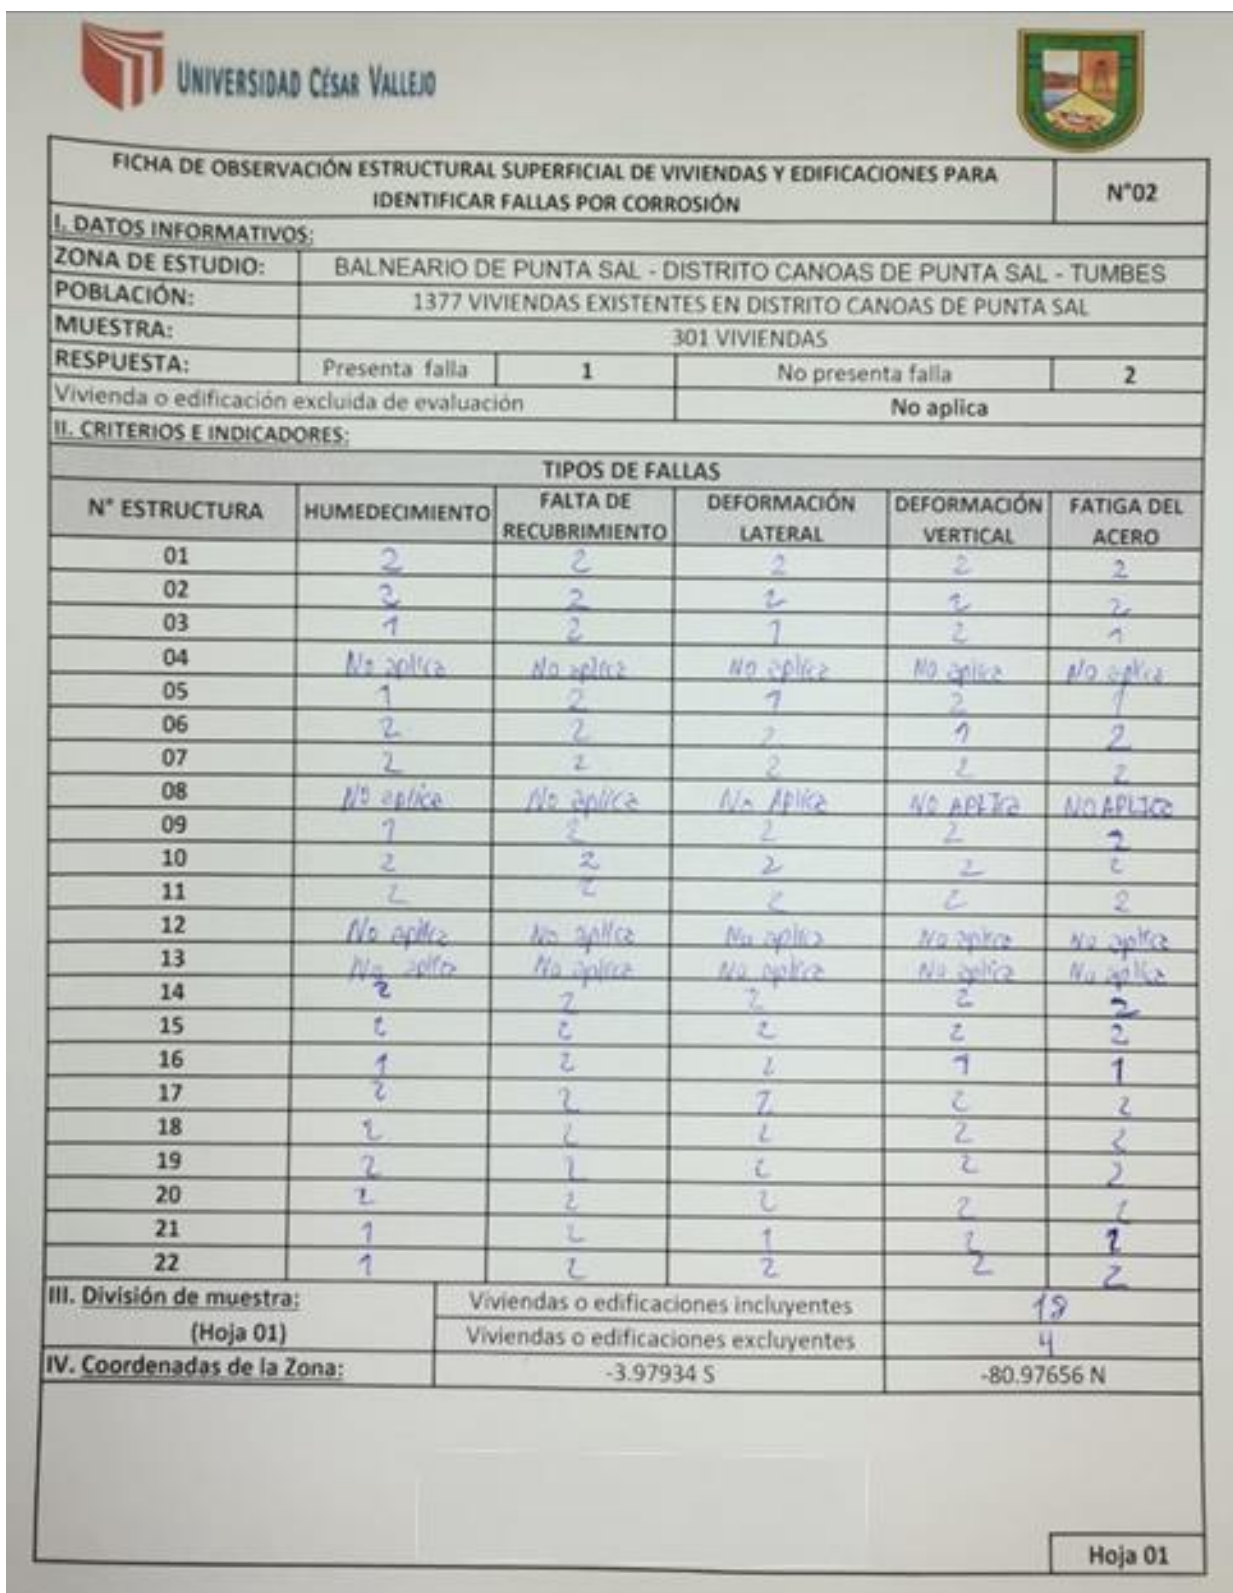 UNIVERSIDAD CÉSAR VALLEJO
FICHA DE OBSERVACIÓN ESTRUCTURAL SUPERFICIAL DE VIVIENDAS Y EDIFICACIONES PARA
IDENTIFICAR FALLAS POR CORROSIÓN
N°02
I. DATOS INFORMATIVOS:
ZONA DE ESTUDIO: BALNEARIO DE PUNTA SAL - DISTRITO CANOAS DE PUNTA SAL - TUMBES
POBLACIÓN: 1377 VIVIENDAS EXISTENTES EN DISTRITO CANOAS DE PUNTA SAL
MUESTRA: 301 VIVIENDAS
RESPUESTA: Presenta falla 1 No presenta falla 2
Vivienda o edificación excluida de evaluación No aplica
II. CRITERIOS E INDICADORES:
TIPOS DE FALLAS
N° ESTRUCTURA HUMEDECIMIENTO FALTA DE RECUBRIMIENTO DEFORMACIÓN LATERAL DEFORMACIÓN VERTICAL FATIGA DEL ACERO
01 2 2 2 2 2
02 2 2 2 2 2
03 1 2 1 2 1
04 No aplica No aplica No aplica No aplica No aplica
05 1 2 1 2 1
06 2 2 2 1 2
07 2 2 2 2 2
08 No aplica No aplica No Aplica NO APLICa NO APLICa
09 1 2 2 2 2
10 2 2 2 2 2
11 2 2 2 2 2
12 No aplica No aplica No aplica No aplica No aplica
13 No aplica No aplica No aplica No aplica No aplica
14 2 2 2 2 2
15 2 2 2 2 2
16 1 2 2 1 1
17 2 2 2 2 2
18 2 2 2 2 2
19 2 2 2 2 2
20 2 2 2 2 2
21 1 2 1 2 1
22 1 2 2 2 2
III. División de muestra: Viviendas o edificaciones incluyentes 18
(Hoja 01) Viviendas o edificaciones excluyentes 4
IV. Coordenadas de la Zona: -3.97934 S -80.97656 N
Hoja 01